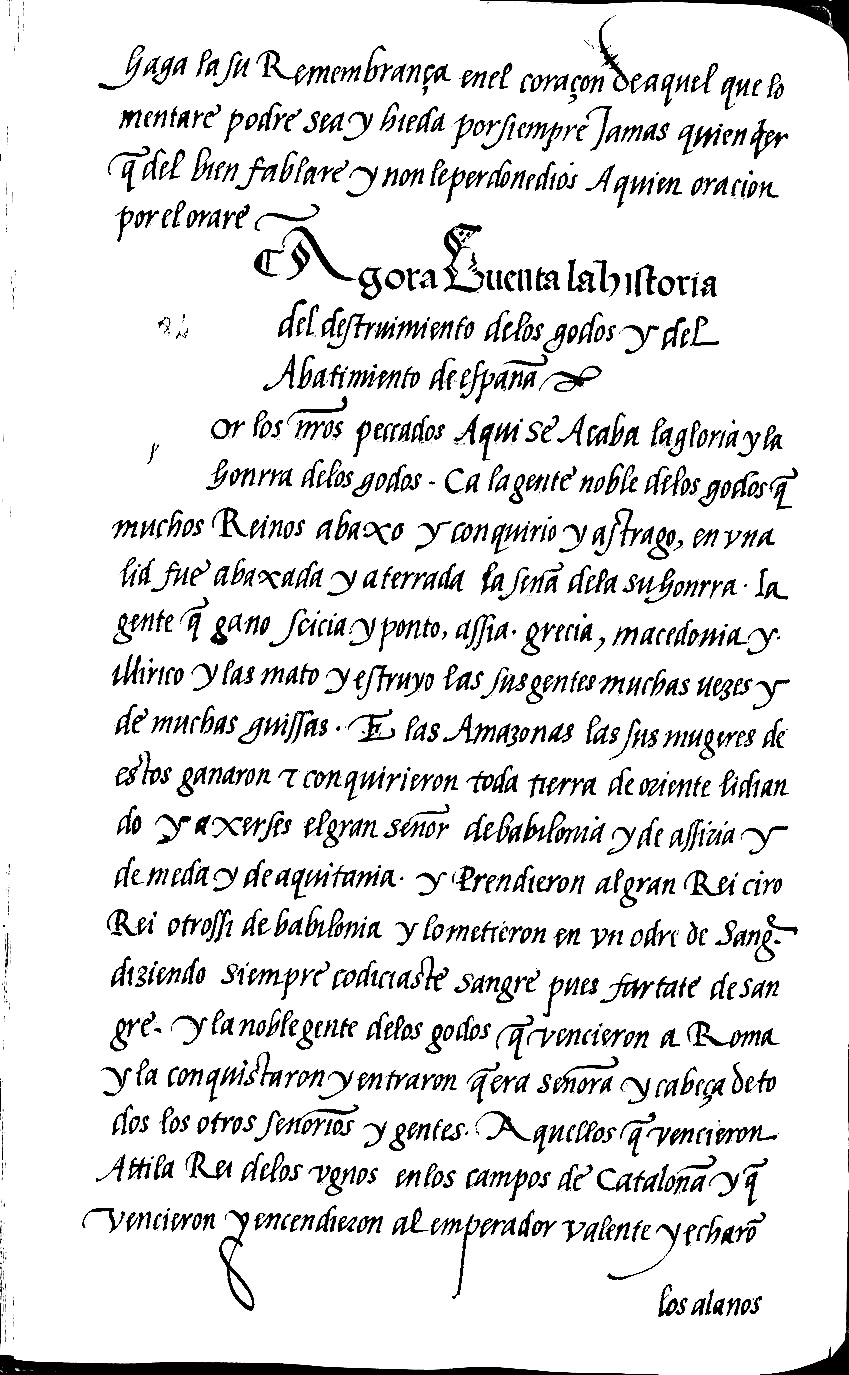 haga la su Remembrança enel coraçon de aquel que lo
mentare podre sea y hieda por siempre Jamas quien
q̃ del bien fablare y non le perdone dios A quien oracion
por el orare
Agora Cuenta la historia
del destruimiento delos godos y del
Abatimiento de españa
or los nr̃os peccados Aqui se Acaba la gloria y la
honrra delos godos - Ca la gente noble delos godos q̃
muchos Reinos abaxo y conquirio y astrago, en vna
lid fue abaxada y aterrada la seña dela su honrra. la
gente q̃ gano scicia y ponto, assia. grecia, macedonia y.
illirico y las mato y estruyo las sus gentes muchas uezes y
de muchas guissas. E las Amazonas las sus mugeres de
estos ganaron τ conquirieron toda tierra de oriente lidian
do y a xerses el gran señor de babilonia y de assiria y
de meda y de aquitania. y Prendieron al gran Rei ciro
Rei otrossi de babilonia y lo metieron en vn odre de Sang.
diziendo siempre codiciaste sangre pues fartate de san
gre. y la noble gente delos godos q̃ vencieron a Roma
y la conquistaron y entraron q̃ era señora y cabeça de to
dos los otros señorios y gentes. Aquellos q̃ vencieron
Attila Rei delos vgnos en los campos de Cataloña y q̃
vencieron y encendieron al emperador valente y echarõ
los alanos